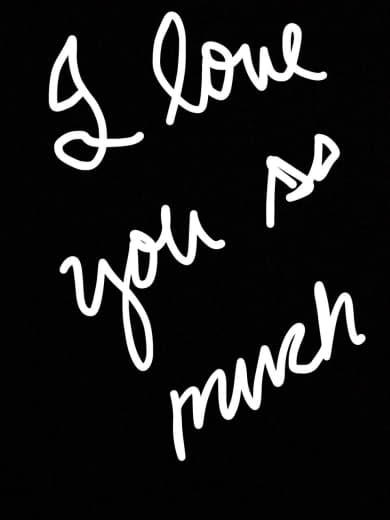 I love
you so
much